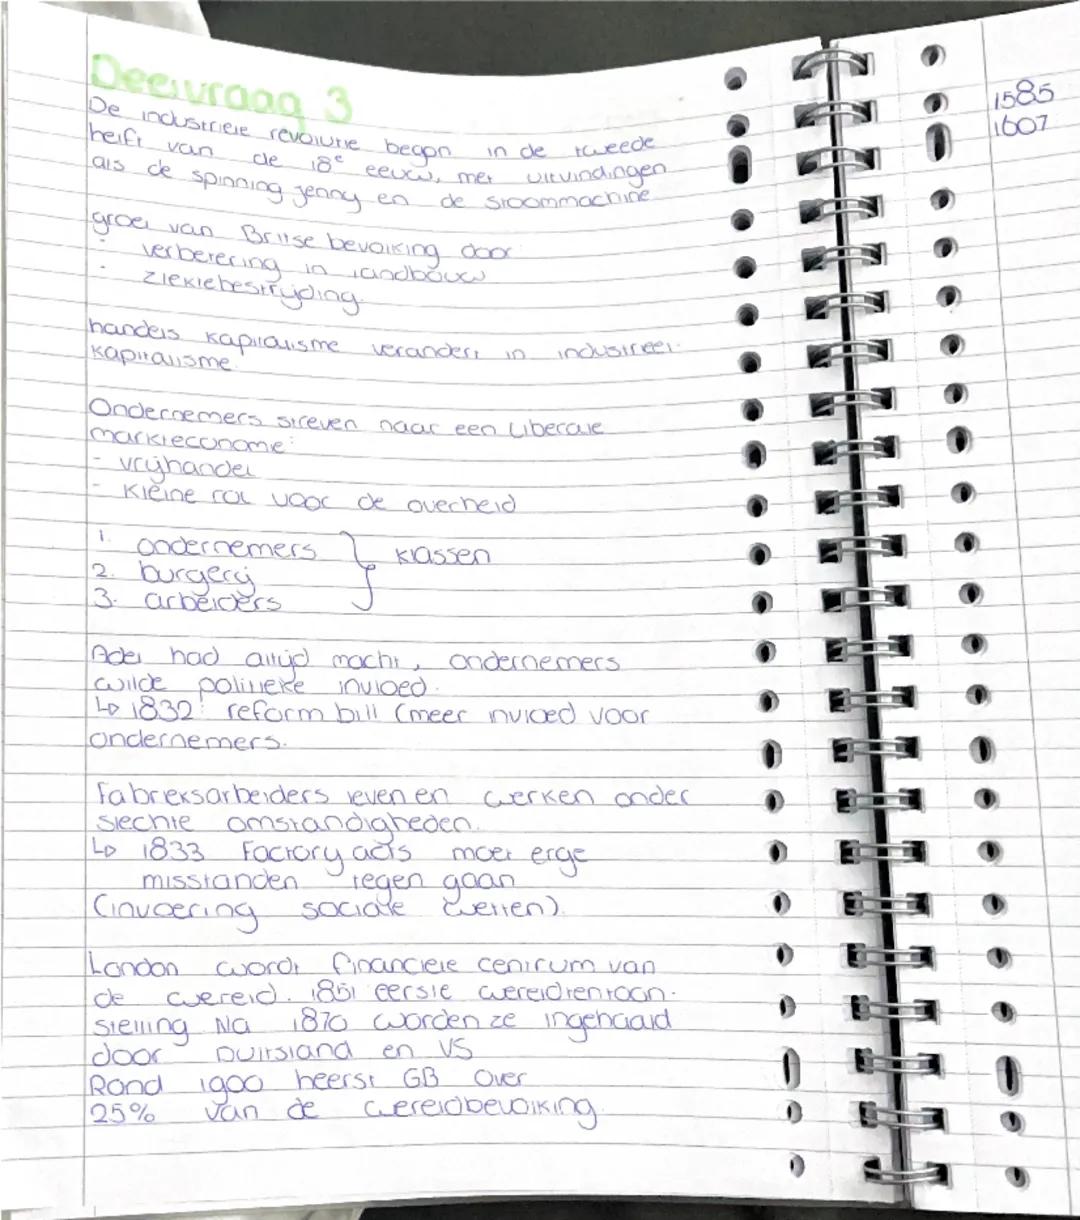 Deelvraag 3
De industriele revolutie begon in de tweede
helft van de 18e eeuw, met uitvindingen
als de spinning jenny en de stoommachine
groei van Britse bevolking door
- verbetering in landbouw
- ziektebestrijding.
handels kapitalisme verandert in industrieel-
kapitalisme.
Ondernemers streven naar een liberale
markteconome:
- vrijhandel
- kleine rol voor de overheid
1. ondernemers
2. burgerij } klassen
3. arbeiders
Adel had altijd macht, ondernemers
wilde politieke invloed.
↳ 1832: reform bill (meer invloed voor
ondernemers.
Fabrieksarbeiders leven en werken onder
slechte omstandigheden.
↳ 1833 Factory acts moet erge
misstanden tegen gaan
(invoering sociale wetten).
London wordt financiele centrum van
de wereld. 1851 eerste wereldtentoon-
stelling Na 1870 worden ze ingehaald
door Duitsland en VS
Rond 1900 heerst GB over
25% van de wereldbevolking.
1585
1607